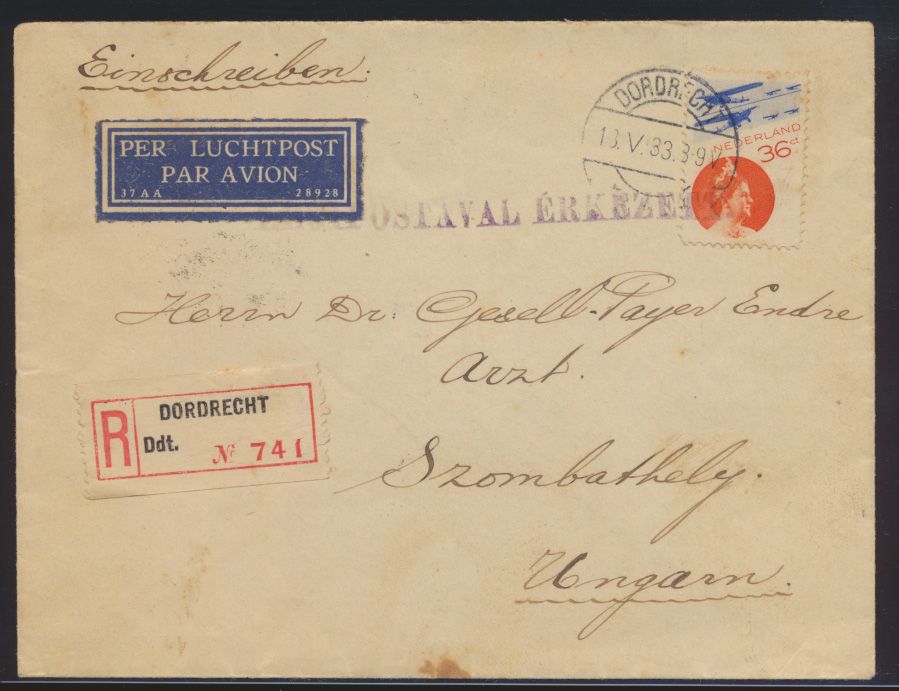 Einschreiben.
PER LUCHTPOST
PAR AVION
37AA 28928
DORDRECHT
V. 33. 8-9 V
NEDERLAND
36 ct
ÉRKEZETT
Herrn Dr. Gesell-Payer Endre
Arzt.
Szombathely.
Ungarn.
R
DORDRECHT
Ddt.
№ 741